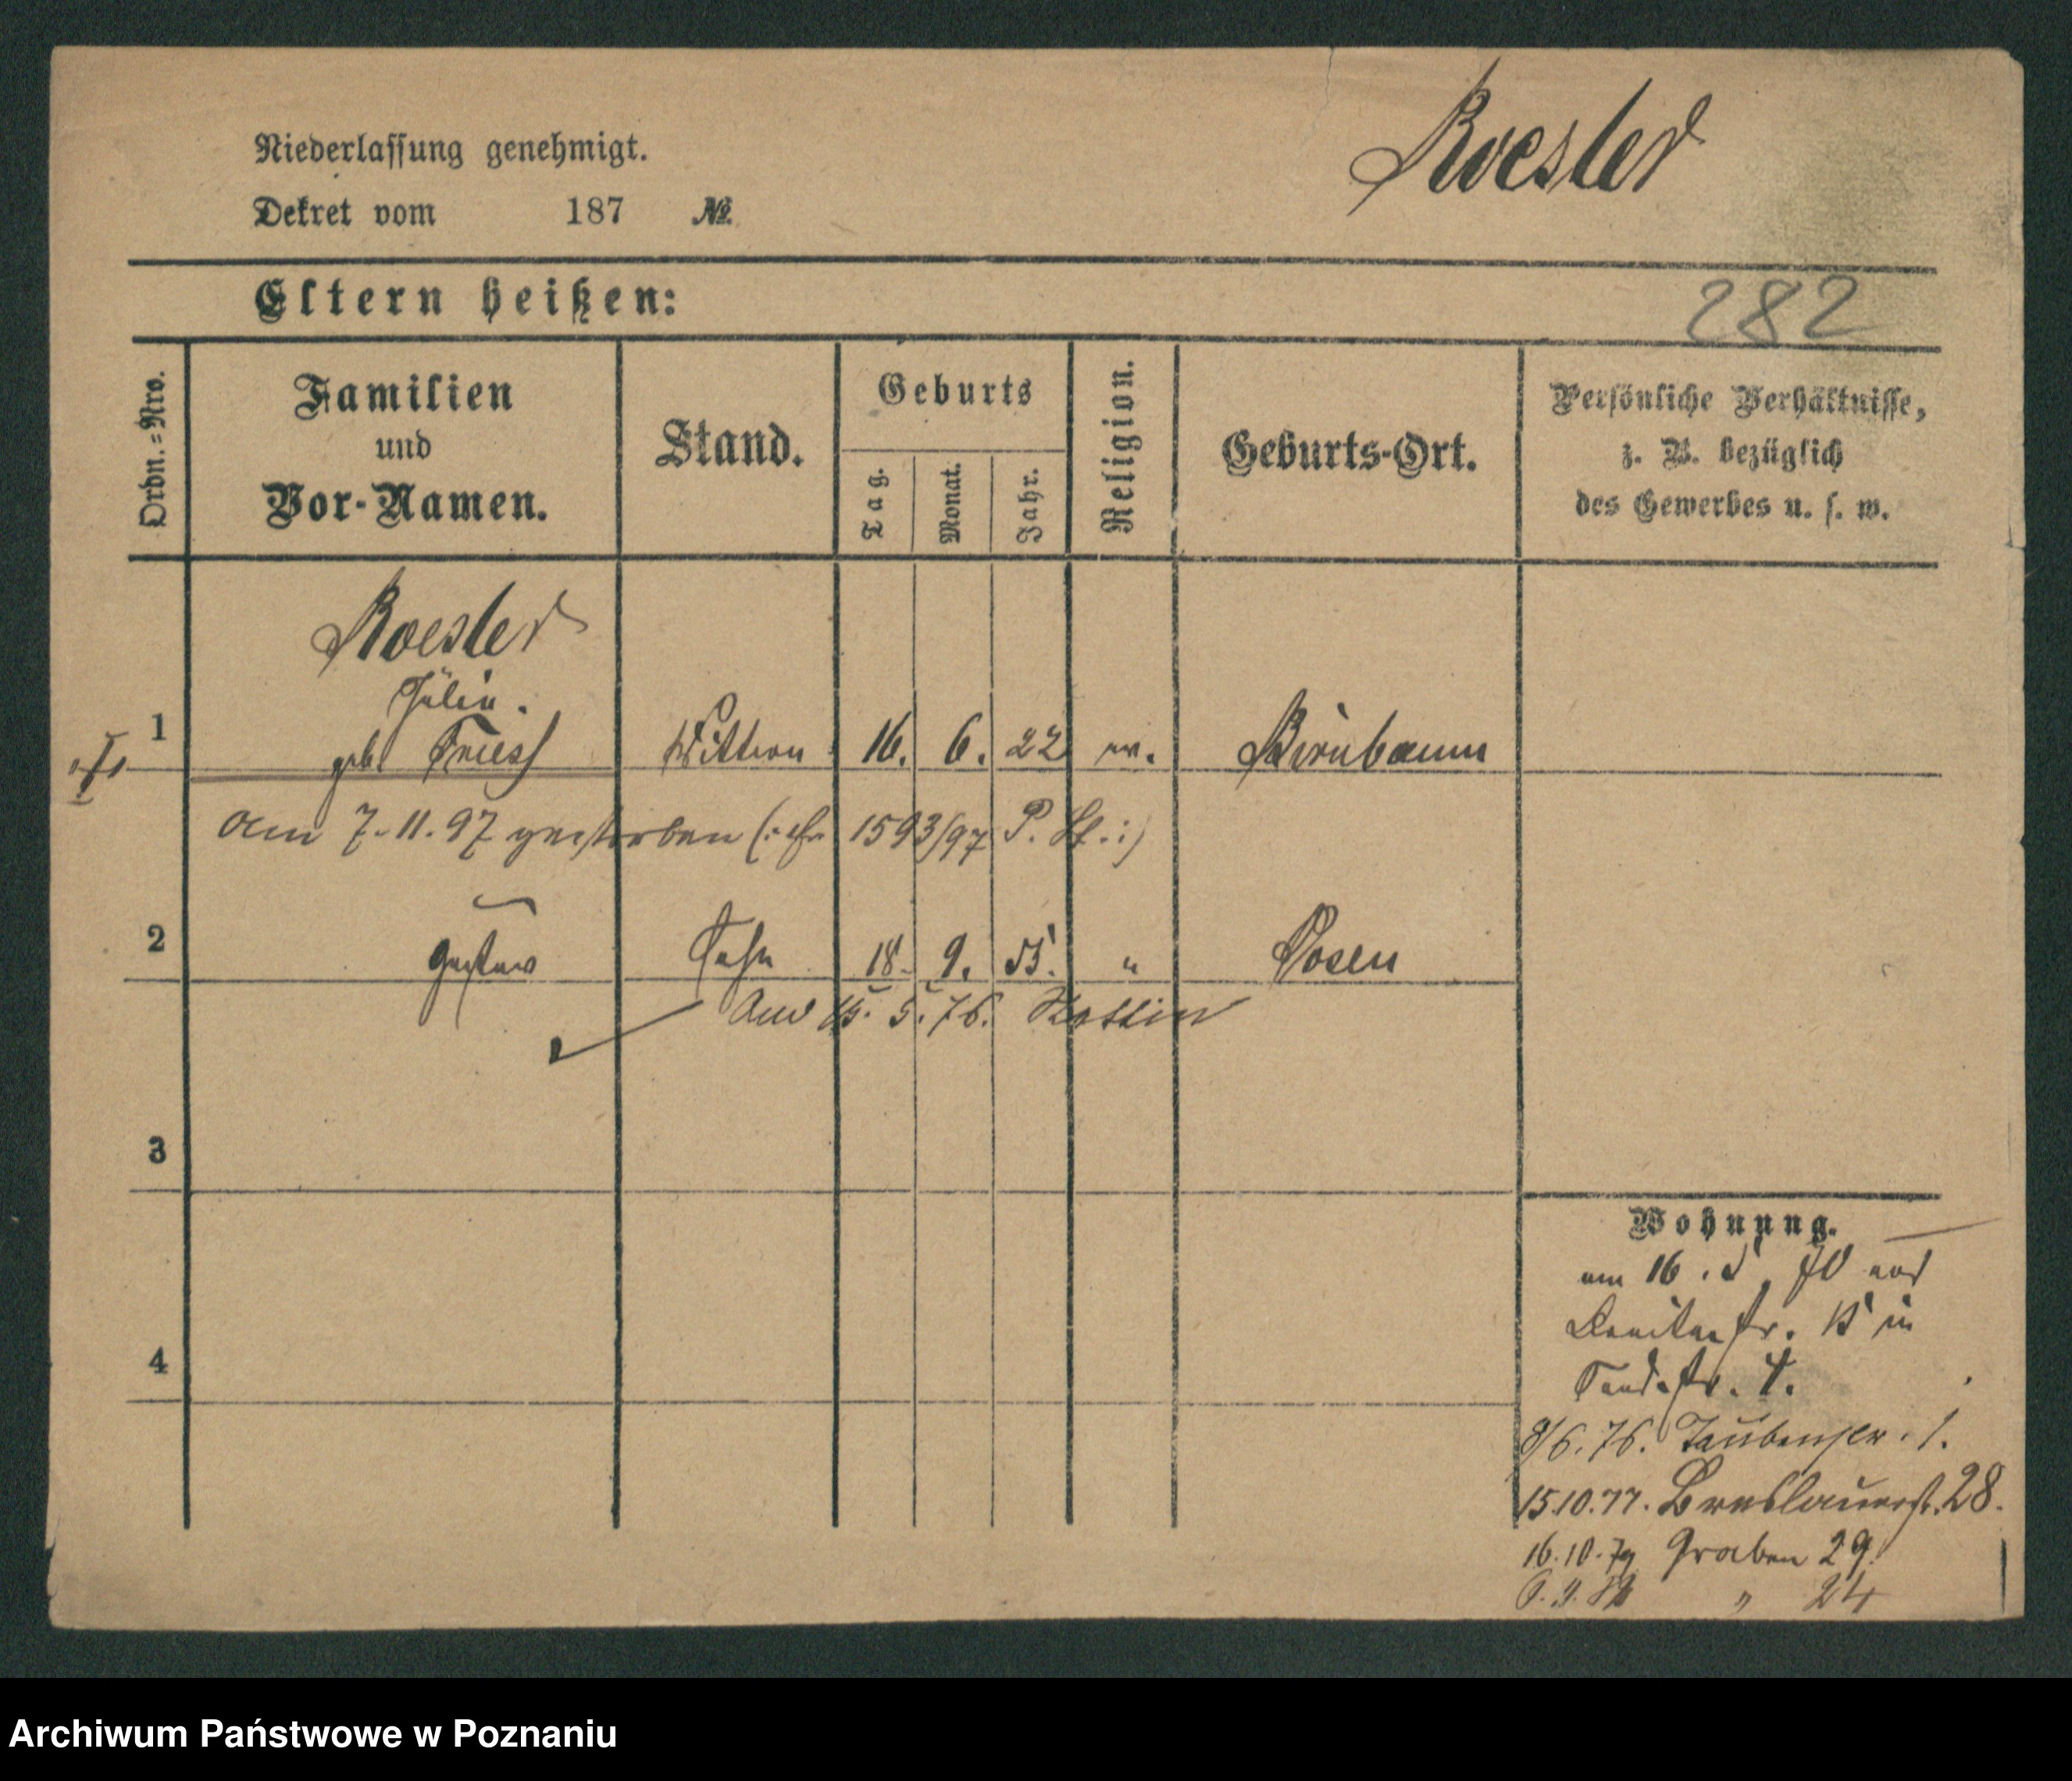 Roesler
Niederlassung genehmigt.
Dekret vom 187 №
Eltern heißen:
282
Ordn.=Nro.
Familien
und
Vor-Namen.
Stand.
Geburts
Tag.
Monat.
Jahr.
Religion.
Geburts-Ort.
Persönliche Verhältnisse,
z. B. bezüglich
des Gewerbes u. s. w.
Roesler
Julia.
1 geb. Friess Wittwe 16. 6. 22 ev. Birnbaum
Am 7. 11. 97 gestorben (: 1593/97 P. St. :)
2 Gustav Sohn 18. 9. 55. " Posen
15. 5. 76. Stettin
3
4
Wohnung.
am 16. 5. 70 aus
str. 15 in
Sandstr. 4.
8/6. 76. Taubenstr. 1.
15.10.77. Breslauerstr. 28.
16.10.79 Graben 29.
" 24
Archiwum Państwowe w Poznaniu